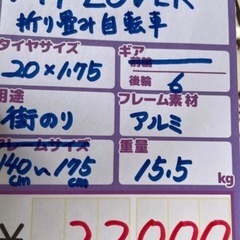 折り畳み自転車
タイヤサイズ ギア
20×1.75 前輪
後輪 6
用途 フレーム素材
街のり アルミ
フレームサイズ 重量
140cm〜175cm 15.5 kg
¥